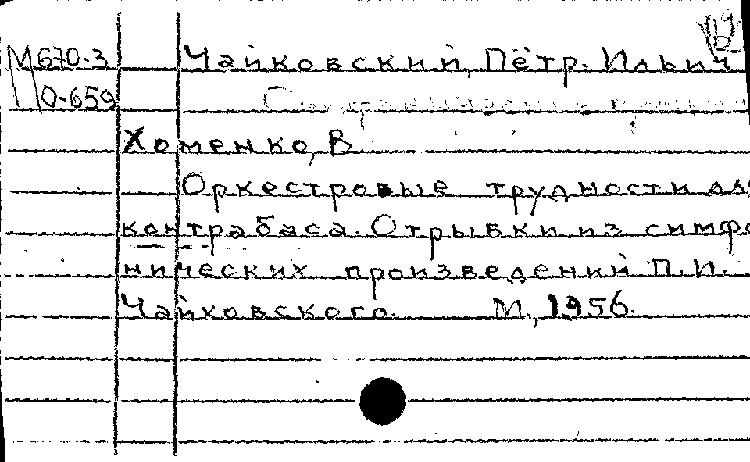 М670-3 Чайковский, Пётр. Ильич
О-659
Хоменко, В
Оркестровые трудности для
контрабаса. Отрывки из симфо
нических произведений П.И.
Чайковского. М., 1956.